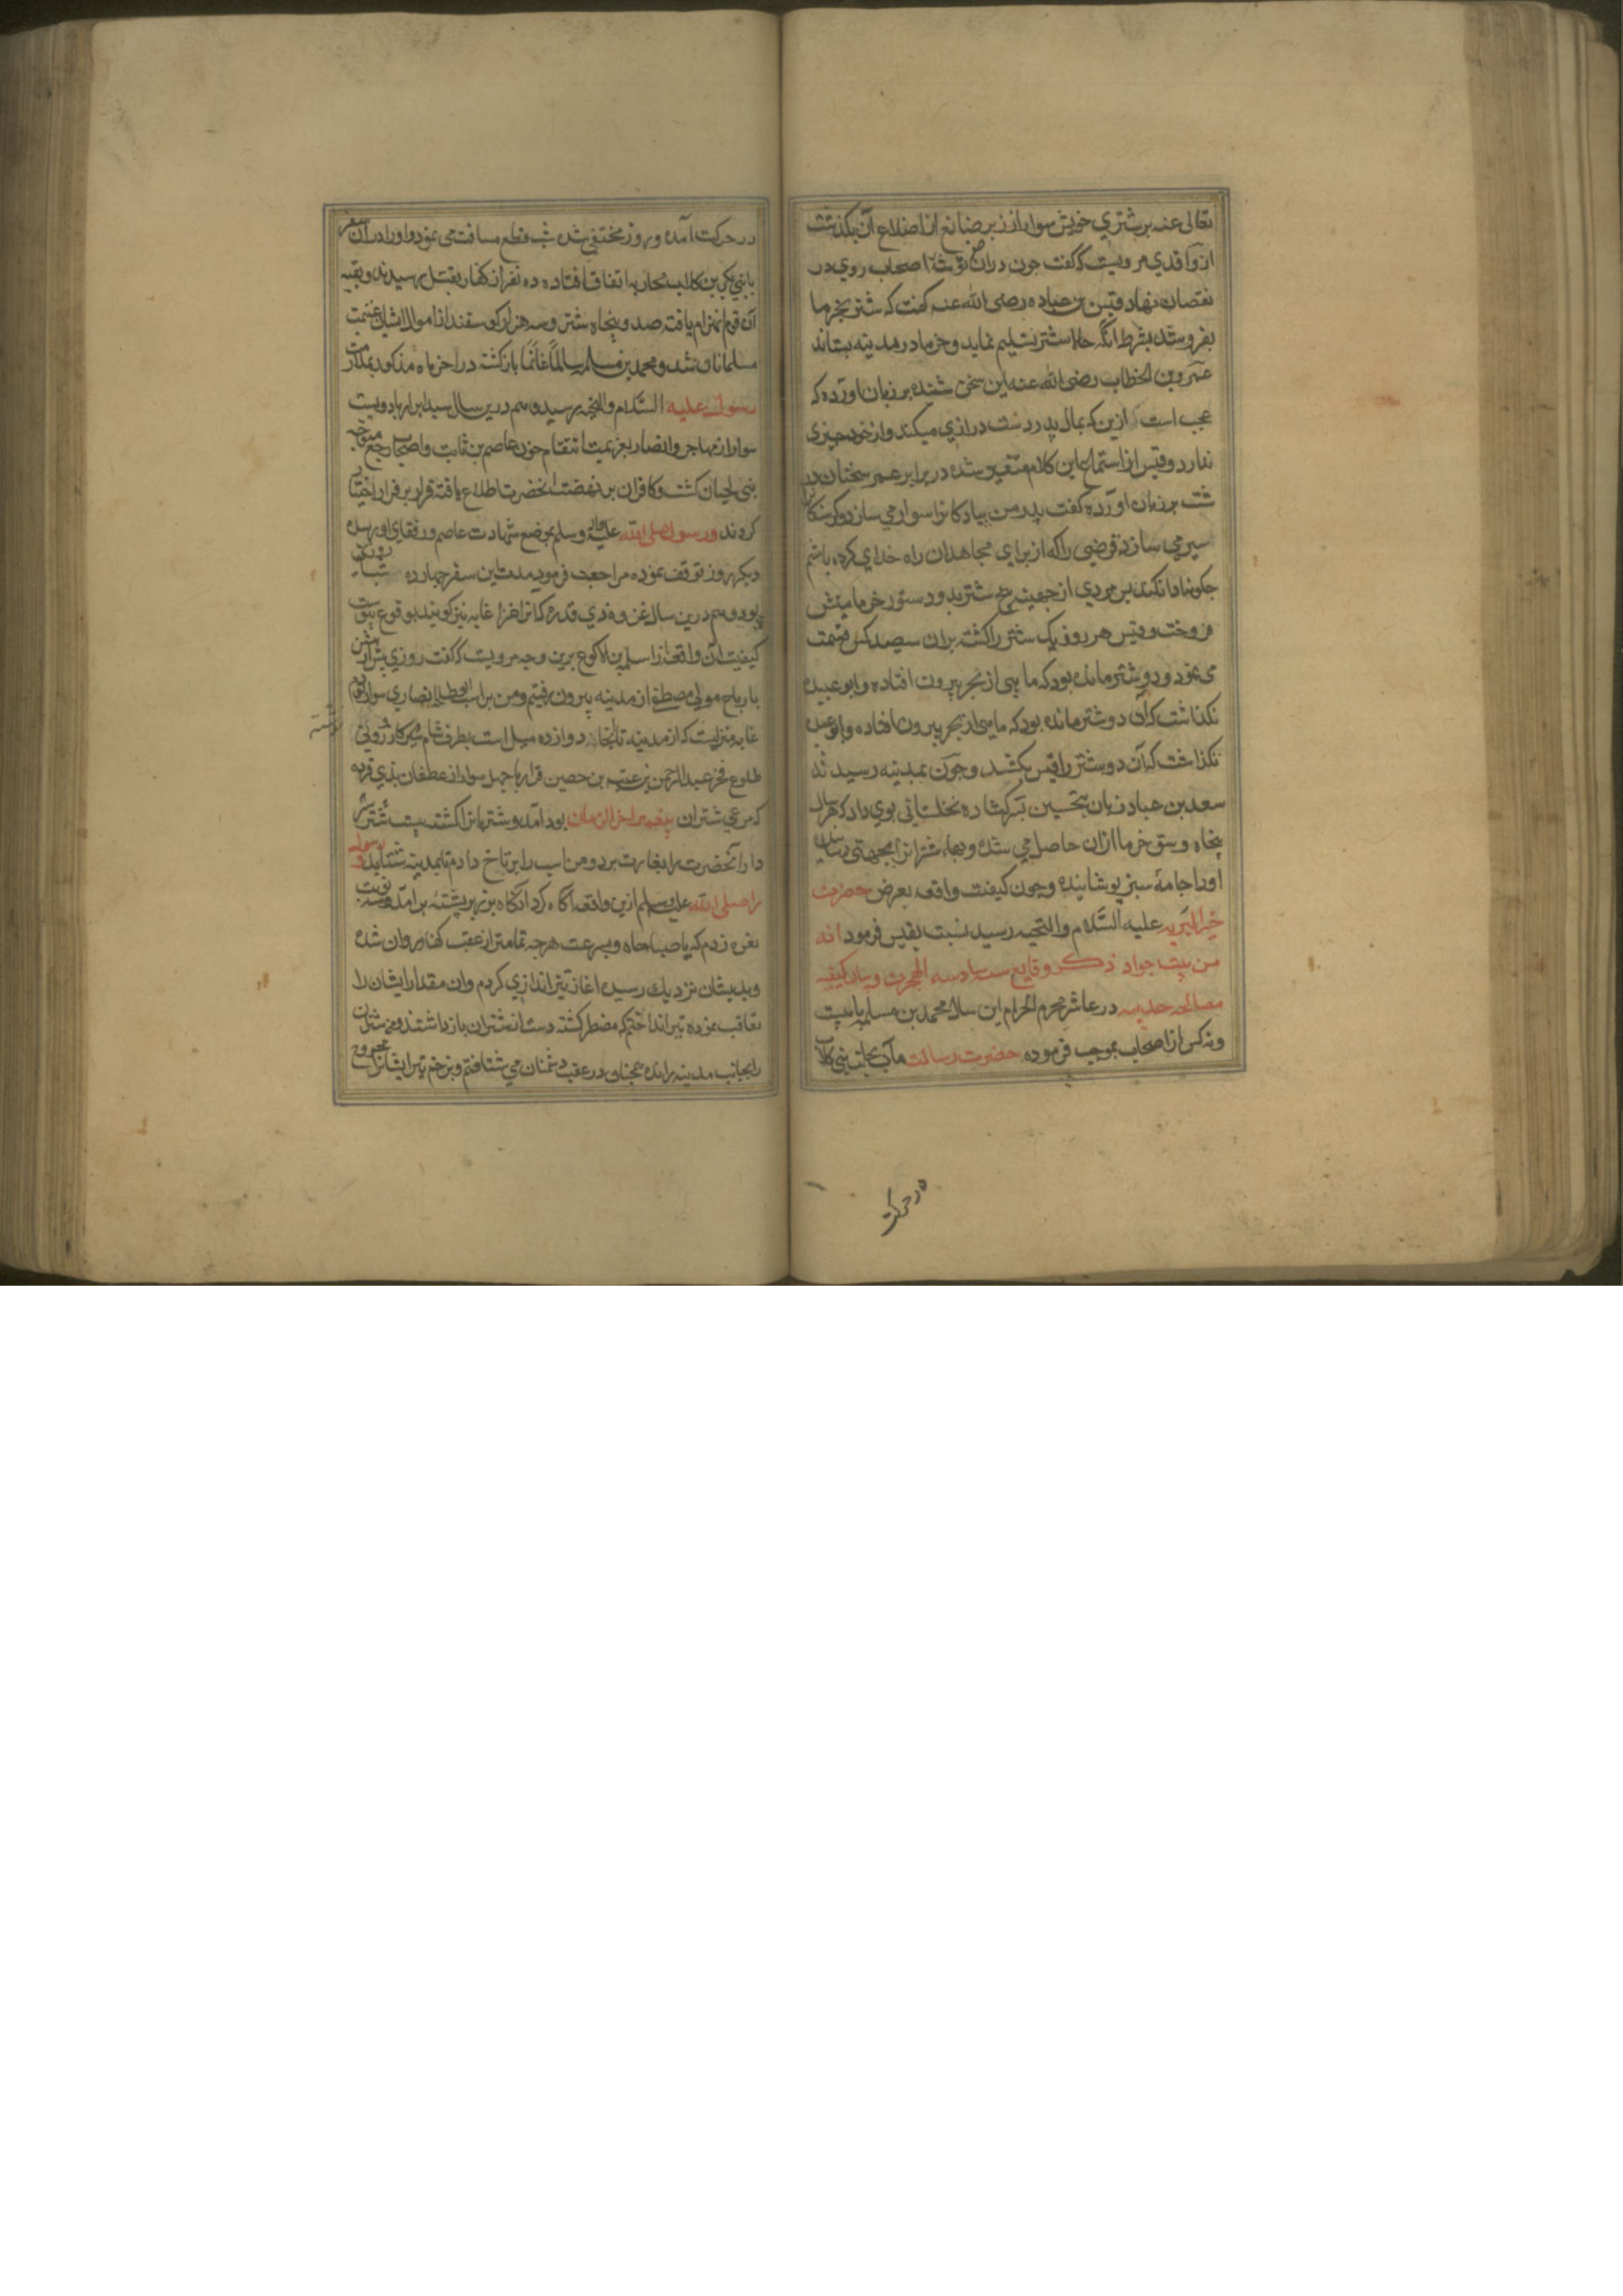 تعالی عنه بر شتری خویش سوار از زیر ضلع از اضلاع آن بگذشت
از واقدی مرویست که گفت چون در آن توشهٔ اصحاب روی در
نقصان نهاد و قیس بن عباده رضی الله عنه گفت که شتر بخرما
بفروشد بشرط آنکه حالا شتر تسلیم نماید و خرما در مدینه بستاند
عمر و بن الخطاب رضی الله عنه این سخن شنیده بر زبان آورده که
عجب است ازین که بمال پدر دست درازی میکند و از خود چیزی
ندارد و قیس از استماع این کلام متغیر شده در برابر عمر سخنان در
شت بر زبان آورده گفت پدر من پیادکانرا سوار می سازد و کرسنکانرا
سیر می سازد قرضی را که از برای مجاهدان راه خدای کرده باشم
چکونه ادا نکند پس مردی از جهینه پنج شتر بدو دستور خرما میش
فروخت و قیس هر روز یک شتر را کشته بران سیصد کس قسمت
می نمود و دو شتر مانده بود که ماهی از بحر بیرون افتاده و ابو عبیده
نکذاشت که آن دو شتر مانده بود که ماهی از بحر بیرون افتاده و ابو عبیده
نکذاشت که آن دو شتر را قیس بکشد و چون بمدینه رسیدند
سعد بن عباد زبان بتحسین پسر کشاده نخلستانی بوی داد که هر سال
پنجاه وسق خرما ازان حاصل می شد و بهاء شترانرا بجهنی رسانیده
او را جامهٔ سبز پوشانیده و چون کیفیت واقعه بعرض حضرت
خیر البریه علیه السلام والتحیه رسید نسبت بقیس فرمود انه
من بیت جواد ذکر وقایع سنه سادسه الهجرت و بیان کیفیه
مصالحه حدیبیه در عاشر محرم الحرام این سال محمد بن مسلمه با بیست
و نه کس از اصحاب بموجب فرموده حضرت رسالت مآب بجانب بنی کلاب
در حرکت
در حرکت آمده و روز مختفی شده شب قطع مسافت می نمود و او را در آن سفر
با بنی بکر بن کلاب محاربه اتفاق افتاده ده نفر از کفار بقتل رسیدند و بقیه
آن قوم انهزام یافته صد و پنجاه شتر و سه هزار کوسفند از اموال ایشان غنیمت
مسلمانان شد و محمد بن مسلمه سالمًا غانمًا بازکشته در اخر ماه مذکور بملازمت
رسول علیه السلام والتحیه رسید و هم درین سال سید ابرار با دویست
سوار از مهاجر و انصار بعزیمت انتقام خون عاصم بن ثابت و اصحاب رجیع متوجه
بنی لحیان کشت و کافران بر نهضت آنحضرت اطلاع یافته قرار بر فرار اختیار
کردند و رسول صلی الله علیه وآله وسلم بموضع شهادت عاصم و رفقای او رسیده
دیکر روز توقف نموده مراجعت فرمود مدت این سفر چهارده شبانروز
بود و هم درین سال غزوه ذی قرد که انرا غزا غابه نیز کویند بوقوع پیوست
کیفیت آن واقعه از سلمه بن الاکوع برین وجه مرویست که گفت روزی پیش از
با رباح مولی مصطفی از مدینه بیرون رفتیم و من بر اسب ابو طلحه انصاری سوار بودم
غابه منزلیست که از مدینه تا آنجا دوازده میل است بطرف شام
طلوع فجر عبد الرحمن بن عیینه بن حصین فزاری با چهل سوار از غطفان بذی قرد
که مرعی شتران پیغمبر اخر الزمان بود آمد و شتربانرا کشته بیست شتر شیر
دار آنحضرت را بغارت برد و من اسب را برباح دادم تا بمدینه شتابد و رسول
را صلی الله علیه وسلم ازین واقعه اکاه کرد انکاه بر زبر پشته بر آمد و سه نوبت
نعره زدم که یا صباحاه و بسرعت هرچه تمامتر از عقب کفار روان شده
و بدیشان نزدیک رسیده اغاز تیر اندازی کردم و ان مقدار ایشان را
تعاقب نموده تیر انداختم که مضطر کشته دست از شتران باز داشتند و من شتران
را بجانب مدینه رانده همچنان در عقب دشمنان می شتافتم و بزخم تیر ایشانرا مجروح